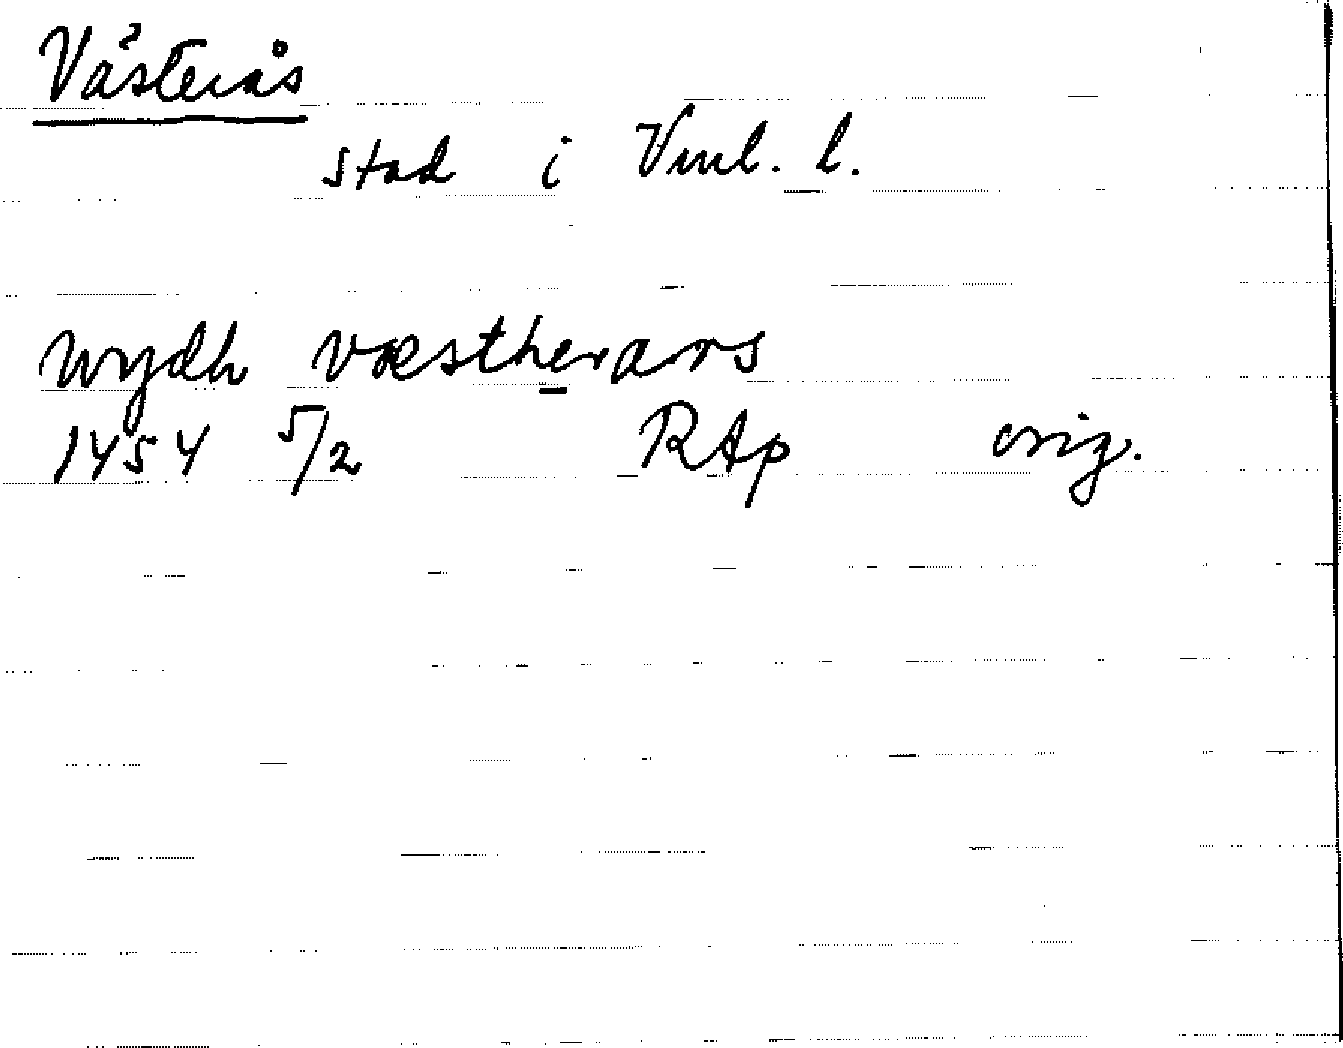 Västerås
stad i Vml. l.
wydh væstherars
1454 5/2 RAp orig.